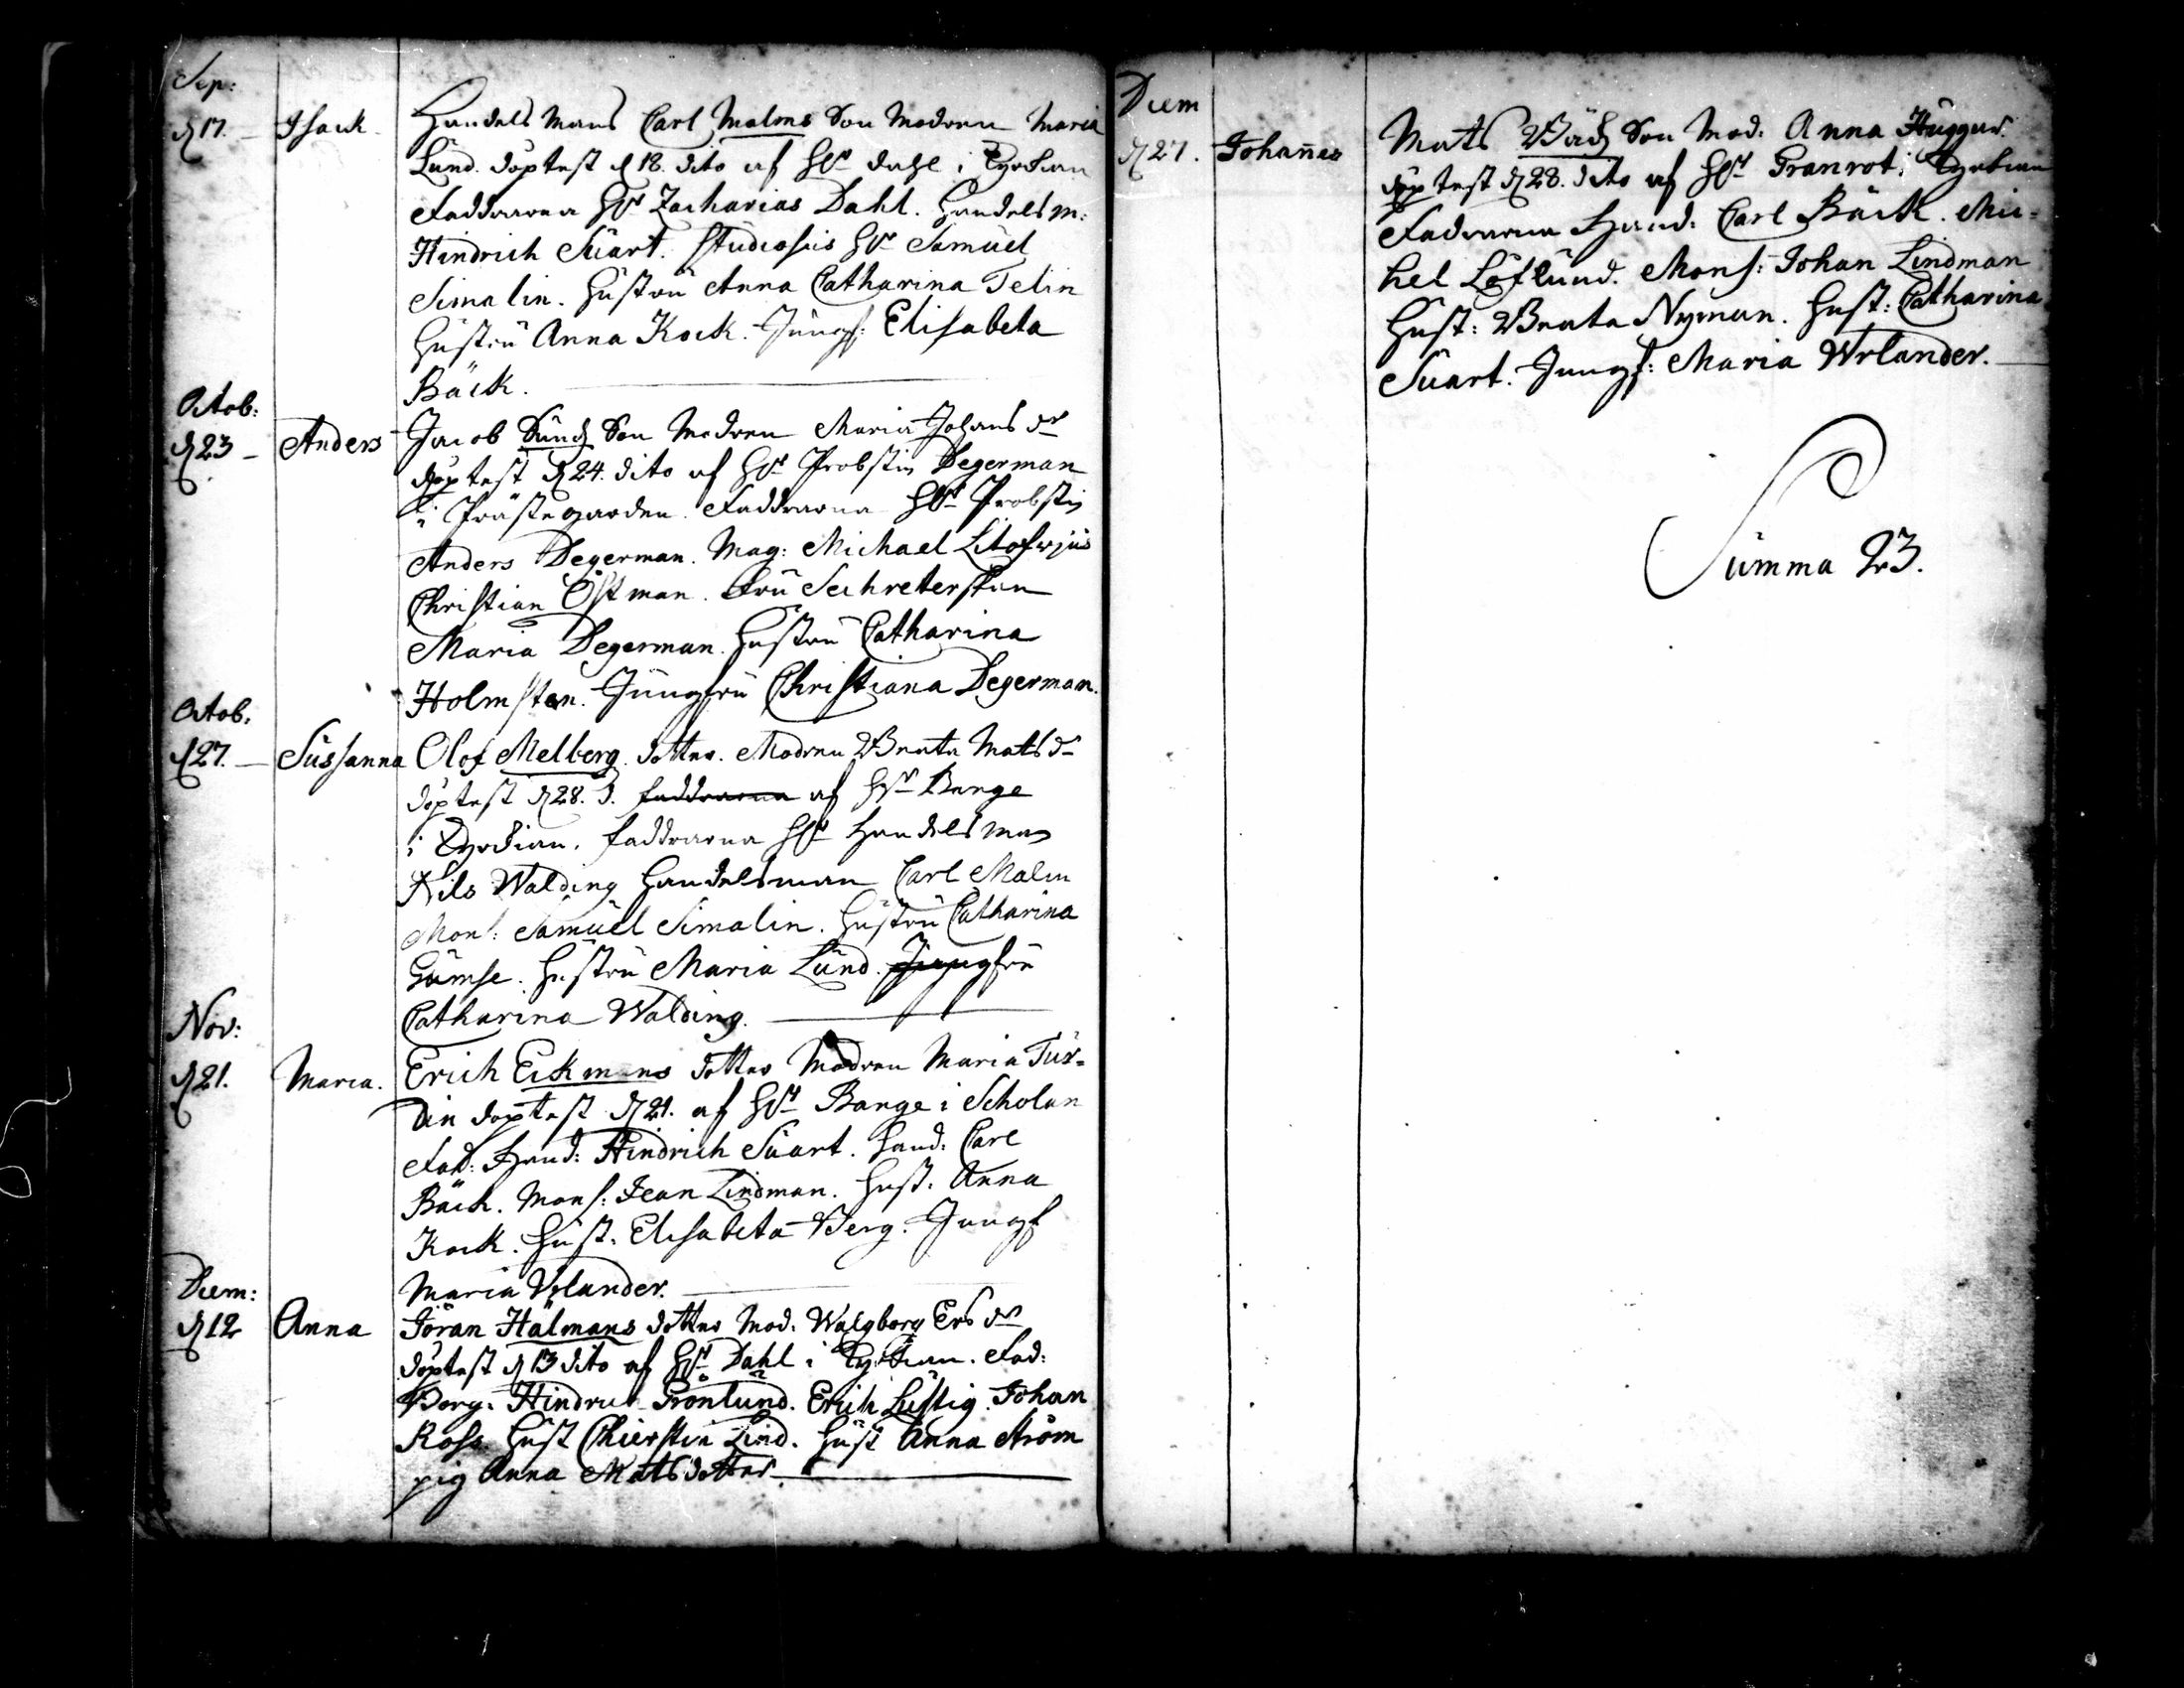 Sep:
d 17. Isack Handels Mans Carl Malms Son Modren Maria
Lund. döptest d 18. dito af HEr Dahl i Kyrkian
Faddrarna HEr Zacharias Dahl. Handelsm:
Hindrich Suart. Studiosus HEr Samuel
Simalin. Hustru Anna Catharina Telin
Hustru Anna Kock. Jungf: Elisabeta
Bäck.
Octob:
d 23 Anders Jacob Sund Son Modren Maria Johans dr
döptest d 24. dito af HEr Probstin Degerman
i Prästegarden. Faddrarna HEr Probstin
Anders Degerman. Mag: Michael Litofwjus
Christian Östman. Fru Sechreterskan
Maria Degerman. Hustru Catharina
Holmsten. Jungfru Christiana Degerman.
Octob:
d 27. Sussanna Olof Melberg dotter. Modren Beata Mats dr
döptest d 28. d. faddrarna af HEr Bange
i Kyrkian. faddrarna HEr Handelsman
Nils Walding Handelsman Carl Malm
Mons: Samuel Simalin. Hustru Catharina
Hustru Maria Lund. Jungfru
Catharina Walding.
Nov:
d 21. Maria. Erich Eckmans dotter Modren Maria Tur-
din döptest d 21. af HEr Bange i Scholan
Fad: Hand: Hindrich Suart. Hand: Carl
Bäck. Mons: Jean Lindman. Hust. Anna
Kock. Hust. Elisabeta Berg. Jungf
Maria Wrlander.
Decem:
d 12 Anna Jöran Hälmans dotter Mod. Walgborg Ers dr
döptest d 13 dito af HEr Dahl i Kyrkian. Fad:
Borg: Hindric Grönlund. Erich Lustig. Johan
Ross. Hust Chierstin Lind. Hust Anna Ström
pig Anna Matsdotter
Decem
d 27. Johannes Mats Son Mod: Anna Huggur.
döptest d 28. dito af HEr Granrot i Kyrkian
Fadrarna Hand: Carl Bäck. Mic-
hel Löflund. Mons: Johan Lindman
Hust: Beata Nyman. Hust: Catharina
Suart. Jungf: Maria Wrlander.
Summa 23.